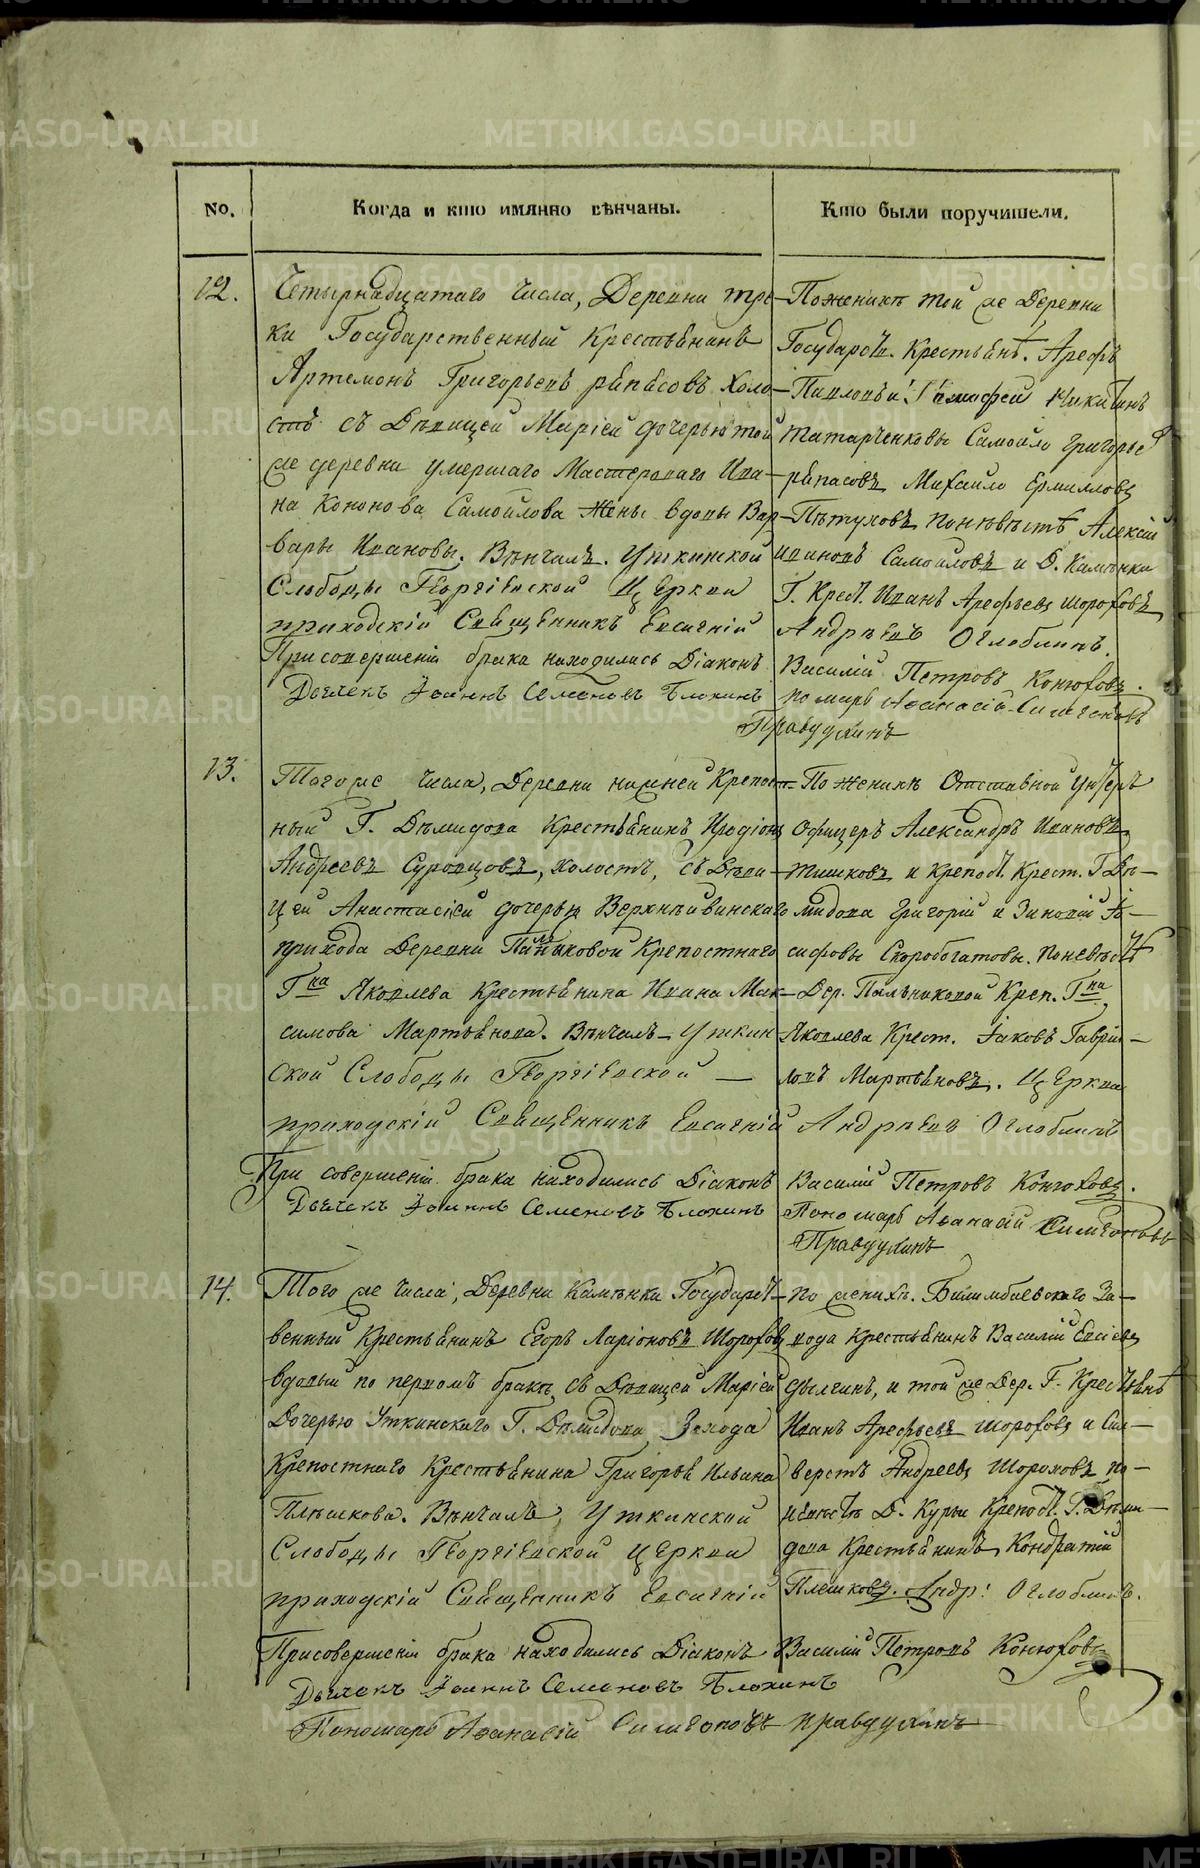 No.
Когда и кто имянно вѣнчаны.
Кто были поручители.
12.
Четырнадцатаго числа, Деревни тре-
ки Государственный Крестьянинъ
Артемонъ Григорьевъ рѣпасовъ холо-
стъ съ Дѣвицей Маріей дочерью той
же деревни умершаго Мастероваго Ива-
на Кононова Самойлова жены вдовы Вар-
вары Ивановы. Вѣнчалъ. Уткинской
Слободы Георгіевской Церкви
приходскій Священникъ Евсигній
При совершеніи брака находились Діаконъ
Дьячекъ Іоаннъ Семеновъ Блохинъ
По женихѣ той же Деревни
Государст. Крестьянѣ. Арефъ
Павловъ и Никитинъ
Татарченковы Самойло Григорье
рѣпасовъ Михайло Ермилловъ
Пѣтуховъ по невѣстѣ Алексій
Ивановъ Самойловъ и Д. Камѣнки
Г. Крест. Иванъ Арефьевъ Шороховъ
Андрѣевъ Оглоблинъ.
Василій Петровъ Конюховъ.
Пономарь Аѳанасій Симеоновъ
Правдухинъ
13.
Тогоже числа, Деревни нижней Крепост-
ный Г. Дѣмидова Крестьянинъ Иродіонъ
Андреевъ Суровцовъ, холостъ, съ Дѣви-
цей Анастасіей дочерью Верхнѣивинскаго
прихода Деревни Пальниковой Крепостнаго
Гна Яковлева Крестьянина Ивана Мак-
симова Мартьянова. Вѣнчалъ Уткин-
ской Слободы Георгіевской
приходскій Священникъ Евсигній
При совершеніи брака находились Діаконъ
Дьячекъ Іоаннъ Семеновъ Блохинъ
По женихѣ Отставной Унтеръ
Офицеръ Александръ Ивановъ
Тишковъ и Крепост. Крест. Г. Дѣ-
мидова Григорій и Зиновій Іо-
сифовы Скоробогатовы. По невѣстѣ
Дер. Пальниковой Креп. Гна
Яковлева Крест. Іаковъ Гаврі-
ловъ Мартьяновъ. Церкви
Андрѣевъ Оглоблинъ
Василій Петровъ Конюховъ.
Пономарь Аѳанасій Симеоновъ
Правдухинъ
14.
Того же числа, Деревни Камѣнки Государст-
венный Крестьянинъ Егоръ Ларіоновъ Шороховъ
вдовый по первомъ бракѣ, съ Дѣвицей Маріей
Дочерью Уткинскаго Г. Дѣмидова Завода
Крепостнаго Крестьянина Григорья Ильина
Плешкова. Вѣнчалъ, Уткинской
Слободы Георгіевской церкви
приходскій Священникъ Евсигній
При совершеніи брака находились Діаконъ
Дьячекъ Іоаннъ Семеновъ Блохинъ
Пономарь Аѳанасій Симеоновъ Правдухинъ
По женихѣ. Билимбаевскаго За-
вода Крестьянинъ Василій Евсіевъ
и той же Дер. Г. Крестьянѣ
Иванъ Арефьевъ Шороховъ и Сил-
верстъ Андреевъ Шороховъ по-
невѣстѣ Д. Курьи Крепост. Г. Дѣми-
дова Крестьянинъ Кондратій
Плешковъ. Андр: Оглоблинъ.
Василій Петровъ Конюховъ
METRIKI.GASO-URAL.RU